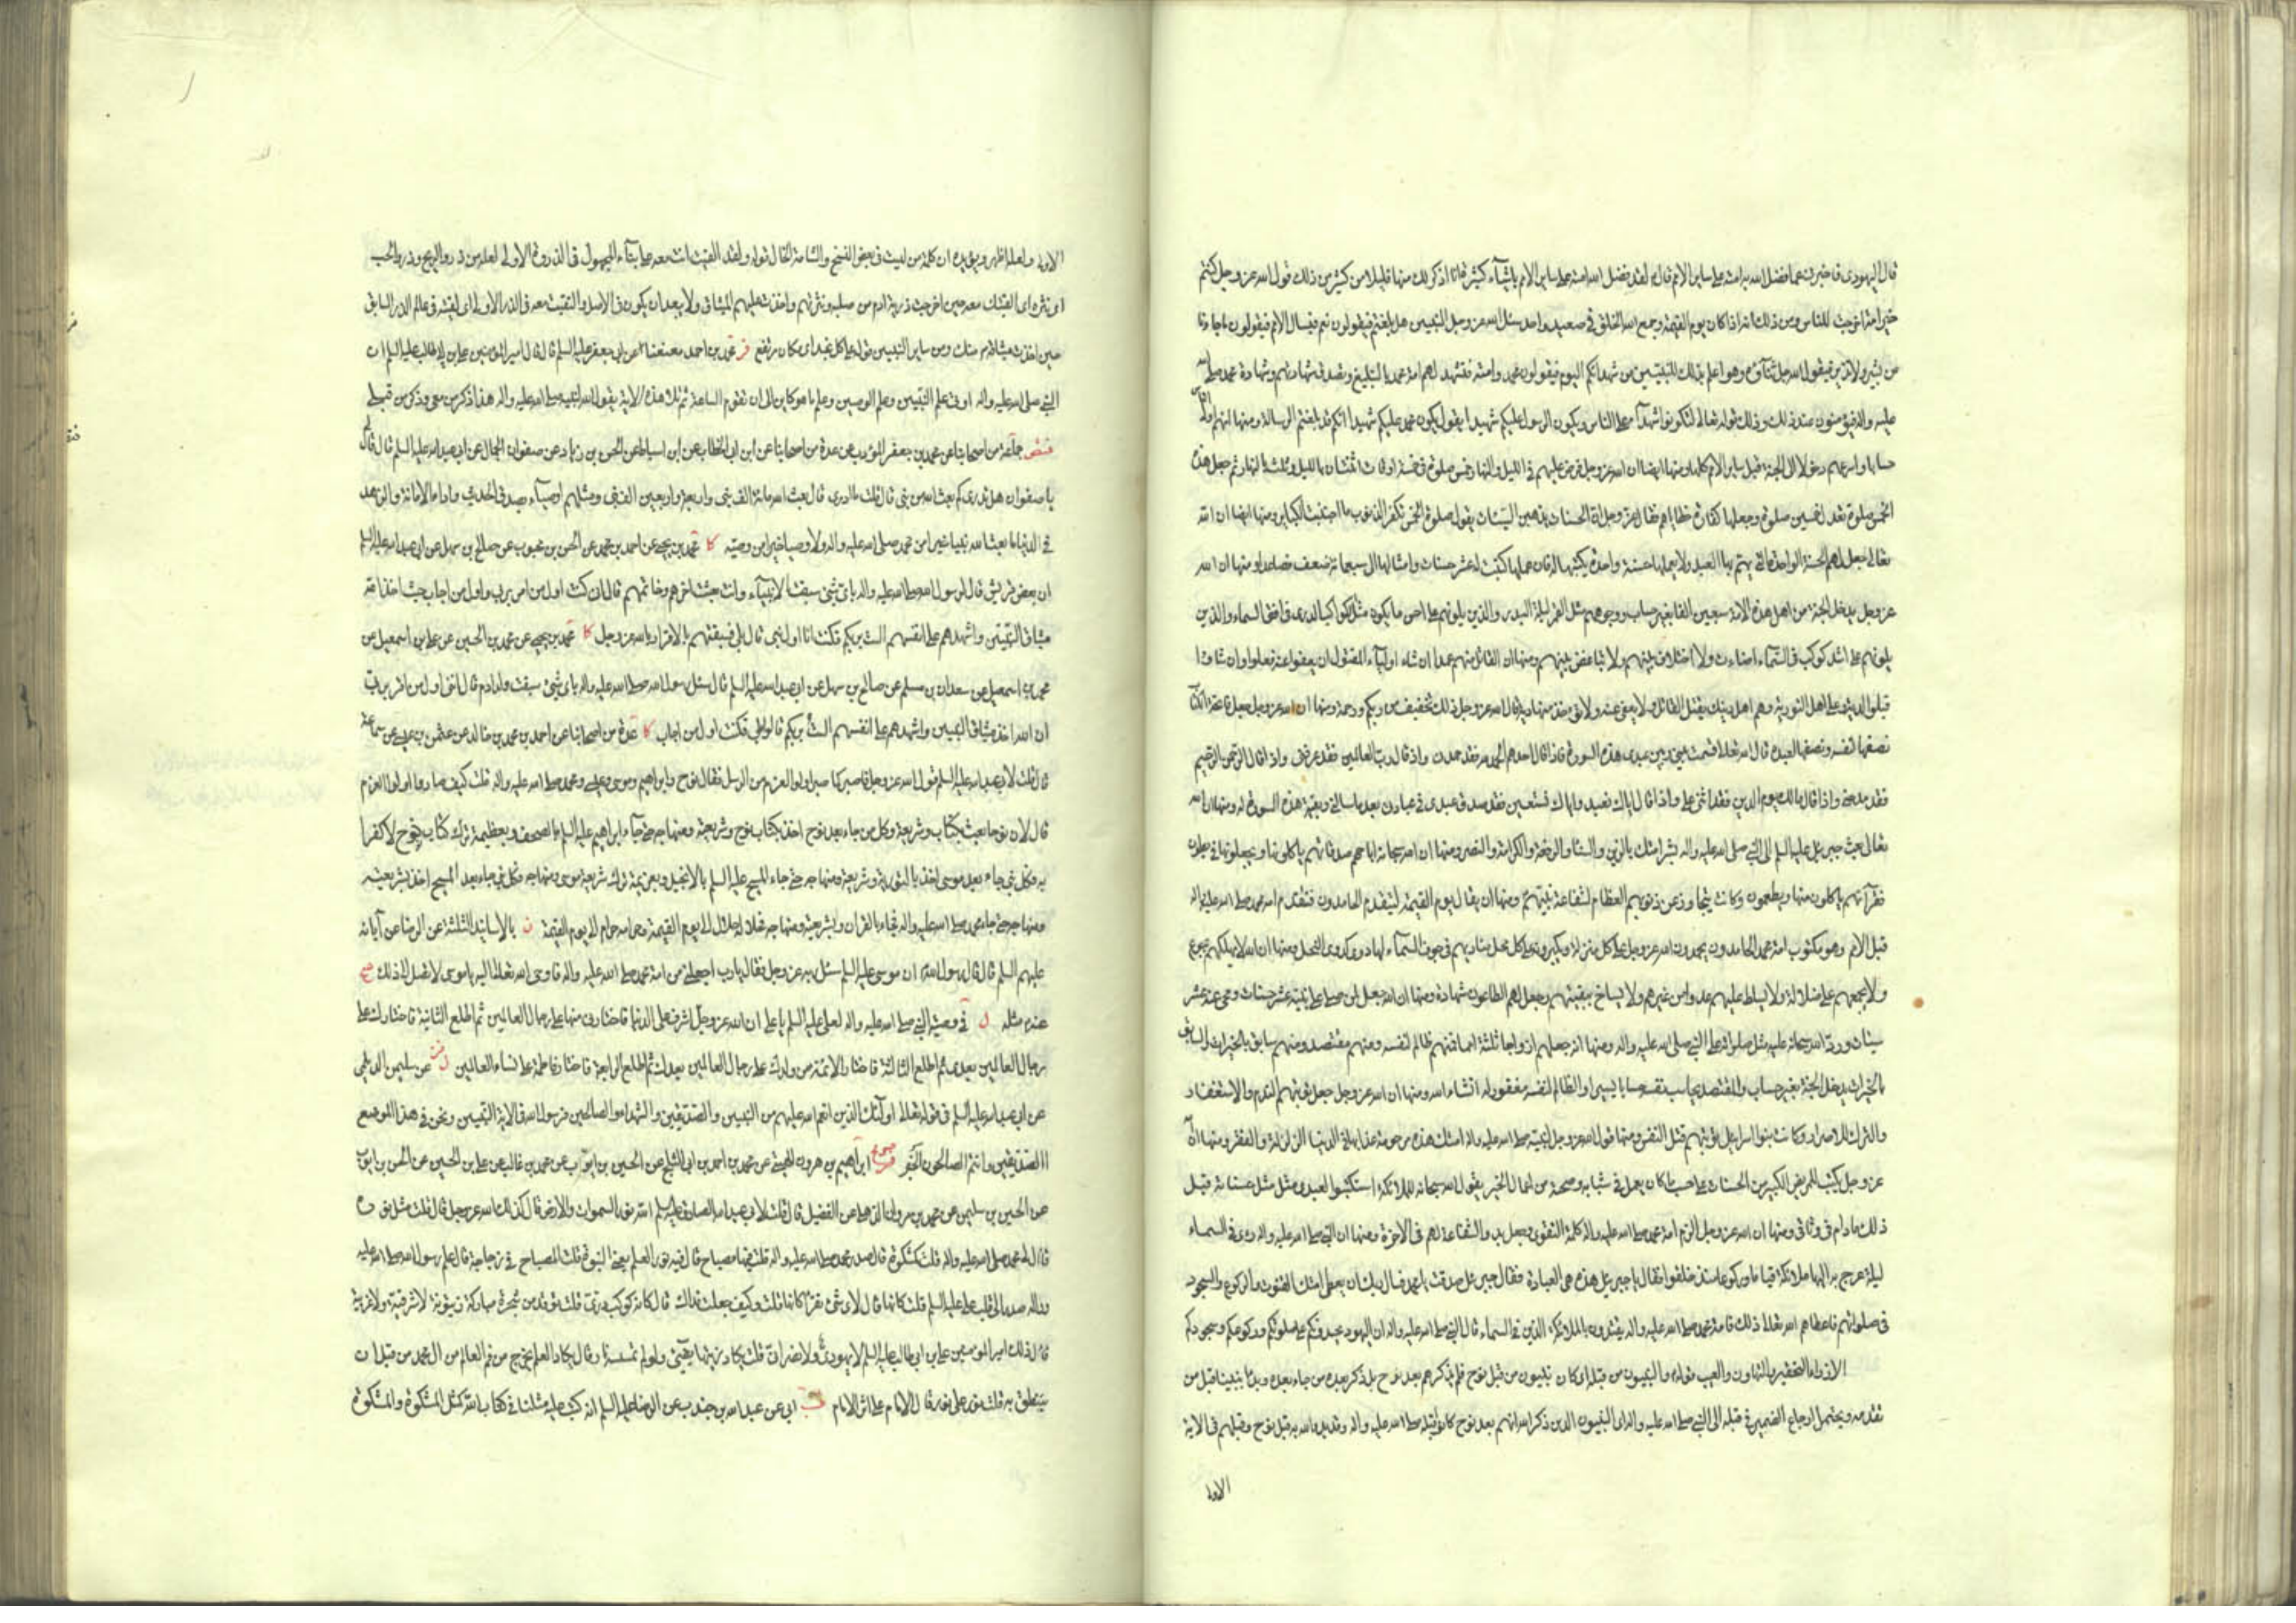 قال اليهودى فاخبرنى عما فضل الله به امته على ساير الامم قال لقد فضل الله امته على ساير الامم باشيآء كثيرة انا اذكر لك منها قليلا من كثير من ذلك قول الله عز وجل كنتم
خير امة اخرجت للناس ومن ذلك انه اذا كان يوم القيمة وجمع الله الخلق فى صعيد واحد سئل الله عز وجل النبيين هل بلغتم فيقولون نعم فيسال الامم فيقولون ما جاءنا
من بشير ولا نذير فيقول الله جل ثناؤه وهو اعلم بذلك للنبيين من شهداءكم اليوم فيقولون محمد وامته فتشهد لهم امة محمد بالتبليغ وتصدق شهادتهم وشهادة محمد صلى الله
عليه واله فيؤمنون عند ذلك وذلك قوله تعالى لتكونوا شهدآء على الناس ويكون الرسول عليكم شهيدا يقول يكون محمد عليكم شهيدا انكم قد بلغتم الرسالة ومنها انهم اول الناس
حسابا واسرعهم دخولا الى الجنة قبل ساير الامم كلها ومنها ايضا ان الله عز وجل فرض عليهم فى الليل والنهار خمس صلوة فى خمسة اوقات اثنتان بالليل وثلث بالنهار ثم جعل هذه
الخمس صلوة تعدل خمسين صلوة وجعلها كفارة خطاياهم فقال عز وجل ان الحسنات يذهبن السيئات يقول صلوة الخمس تكفر الذنوب ما اجتنبت الكباير ومنها ايضا ان الله
تعالى جعل لهم الحسنة الواحدة التى يهتم بها العبد ولا يعملها حسنة واحدة يكتبها له فان عملها كتبت له عشر حسنات وامثالها الى سبعمائة ضعف فصاعدا ومنها ان الله
عز وجل يدخل الجنة من اهل هذه الامة سبعين الفا بغير حساب ووجوههم مثل القمر ليلة البدر والذين يلونهم على احسن ما يكون مثل الكوكب الدرى فى افق السماء والذين
يلونهم على اشد كوكب فى السماء اضاءة ولا اختلاف بينهم ولا تباغض بينهم ومنها ان القاتل منهم عمدا ان شاء اوليآء المقتول ان يعفوا عنه فعلوا وان شاؤا
قبلوا الدية وعلى اهل التورية وهم اهل دينك يقتل القاتل ولا يعفى عنه ولا تؤخذ منه دية قال الله عز وجل ذلك تخفيف من ربكم ورحمة ومنها ان الله عز وجل جعل فاتحة الكتاب
نصفها لنفسه ونصفها لعبده قال الله تعالى قسمت بينى وبين عبدى هذه السورة فاذا قال احدهم الحمد لله فقد حمدنى واذا قال رب العالمين فقد عرفنى واذا قال الرحمن الرحيم
فقد مدحنى واذا قال مالك يوم الدين فقد اثنى على واذا قال اياك نعبد واياك نستعين فقد صدق عبدى فى عبادتى بعد ما سالنى وبقية هذه السورة له ومنها ان الله
تعالى بعث جبرئيل عليه السلم الى النبى صلى الله عليه واله بشر امتك بالزين والسناء والرفعة والكرامة والنصر ومنها ان الله سبحانه اباحهم صدقاتهم ياكلونها ويجعلونها فى بطون
فقرآئهم ياكلون منها ويطعمون وكانت يتجاوز عن ذنوبهم العظام لشفاعة نبيهم ومنها ان يقال يوم القيمة ليتقدم الحامدون فتقدم امة محمد صلى الله عليه واله
قبل الامم وهو مكتوب امة محمد الحامدون يحمدون الله عز وجل على كل منزلة ويكبرونه على كل نجد مناديهم فى جوف السمآء لهم دوى كدوى النحل ومنها ان الله لا يهلكهم بجوع
ولا يجمعهم على ضلالة ولا يسلط عليهم عدوا من غيرهم ولا يساخ ببقيتهم وجعل لهم الطاعون شهادة ومنها ان الله جعل لمن صلى على نبيه عشر حسنات ومحى عنه عشر
سيئات ورد الله سبحانه عليه مثل صلوته على النبى صلى الله عليه واله ومنها انه جعلهم ازواجا ثلثة امما فمنهم ظالم لنفسه ومنهم مقتصد ومنهم سابق بالخيرات والسابق
بالخيرات يدخل الجنة بغير حساب والمقتصد يحاسب نفسه حسابا يسيرا والظالم لنفسه مغفور له انشاء الله ومنها ان الله عز وجل جعل توبتهم الندم والاستغفار
والترك للاصرار وكانت بنو اسرائيل توبتهم قتل النفس ومنها قول الله عز وجل لنبيه صلى الله عليه واله امتك هذه مرحومة عذابها فى الدنيا الزلزلة والفقر ومنها ان الله
عز وجل يكتب للمريض الكبير من الحسنات على حسب ما كان يعمل فى شبابه وصحته من اعمال الخير يقول الله سبحانه للملائكة استكتبوا لعبدى مثل حسناته قبل
ذلك مادام فى وثاقى ومنها ان الله عز وجل الزم امة محمد صلى الله عليه واله كلمة التقوى وجعل بدء الشفاعة لهم فى الاخرة ومنها ان النبى صلى الله عليه واله رأى فى السماء
ليلة عرج به اليها ملائكة قياما وركوعا منذ خلقوا فقال يا جبرئيل هذه هى العبادة فقال جبرئيل صدقت يا محمد فاسال ربك ان يعطى امتك القنوت والركوع والسجود
فى صلوتهم فاعطاهم الله تعالى ذلك فامة محمد صلى الله عليه واله يقتدون بالملائكة الذين فى السماء قال النبى صلى الله عليه واله ان اليهود يحسدونكم على صلوتكم وركوعكم وسجودكم
الازراء التحقير والتهاون والعيب قوله والنبيون من قبله اى كان نبيون من قبل نوح فلم يذكرهم بعد نوح بل ذكر بعده من جاء بعده وبدا بنبينا قبل من
تقدمه ويحتمل ارجاع الضمير فى قبله الى النبى صلى الله عليه واله اى النبيون الذين ذكر الله انهم بعد نوح كانوا قبله صلى الله عليه واله وقد بدء الله به قبل نوح وقبلهم فى الاية
الاولى
الاولى ولعله اظهر ويؤيده ان كلمة من ليست فى بعض النسخ والشامة الخال قوله ولقد القيت انت معه على بنآء المجهول فى الذروة الاولى لعله من ذرو الريح وذرو الحب
اى نثره اى القيتك معه حين اخرجت ذرية ادم من صلبه ونثرتهم واخذت عليهم الميثاق ولا يبعد ان يكون فى الاصل والتقيت معه فى الذر الاولى اى لقيته فى عالم الذر السابق
حين اخذت ميثاقه منك ومن ساير النبيين قوله على كل نجد اى مكان مرتفع فر محمد بن احمد معنعنا عن ابى جعفر عليه السلم قال قال امير المؤمنين على بن ابى طالب عليه السلم ان
النبى صلى الله عليه واله اوتى علم النبيين وعلم الوصيين وعلم ما هو كاين الى ان تقوم الساعة ثم تلا هذه الاية يقول الله لنبيه صلى الله عليه واله هذا ذكر من معى وذكر من قبلى
ختص جماعة من اصحابنا عن محمد بن جعفر المؤدب عن عدة من اصحابنا عن ابن ابى الخطاب عن ابن اسباط عن الحسن بن زياد عن صفوان الجمال عن ابى عبد الله عليه السلم قال قال لى
يا صفوان هل تدرى كم بعث الله من نبى قال قلت ما ادرى قال بعث الله مائة الف نبى واربعة واربعين الف نبى ومثلهم اوصيآء بصدق الحديث واداء الامانة والزهد
فى الدنيا وما بعث الله نبيا خيرا من محمد صلى الله عليه واله ولا وصيا خيرا من وصيه كا محمد بن يحيى عن احمد بن محمد عن الحسن بن محبوب عن صالح بن سهل عن ابى عبد الله عليه السلم
ان بعض قريش قال لرسول الله صلى الله عليه واله باى شىء سبقت الانبيآء وانت بعثت اخرهم وخاتمهم قال ان كنت اول من امن بربى واول من اجاب حيث اخذ الله
ميثاق النبيين واشهدهم على انفسهم الست بربكم فكنت انا اول نبى قال بلى فسبقتهم بالاقرار بالله عز وجل كا محمد بن يحيى عن محمد بن الحسين عن على بن اسمعيل عن
محمد بن اسمعيل عن سعدان بن مسلم عن صالح بن سهل عن ابى عبد الله عليه السلم قال سئل رسول الله صلى الله عليه واله باى شىء سبقت ولد ادم قال اننى اول من اقر بربى
ان الله اخذ ميثاق النبيين واشهدهم على انفسهم الست بربكم قالوا بلى فكنت اول من اجاب كا عدة من اصحابنا عن احمد بن محمد بن خالد عن عثمن بن عيسى عن سماعة
قال قلت لابى عبد الله عليه السلم قول الله عز وجل فاصبر كما صبر اولوا العزم من الرسل فقال نوح وابراهيم وموسى وعيسى ومحمد صلى الله عليه واله قلت كيف صاروا اولوا العزم
قال لان نوحا بعث بكتاب وشريعة وكل من جاء بعد نوح اخذ بكتاب نوح وشريعته ومنهاجه حتى جآء ابراهيم عليه السلم بالصحف وبعظيمة ترك كتاب نوح لا كفرا
به فكل نبى جاء بعد موسى اخذ بالتورية وشريعته ومنهاجه حتى جاء المسيح عليه السلم بالانجيل وبعزيمة ترك شريعة موسى ومنهاجه فكل نبى جاء بعد المسيح اخذ بشريعته
ومنهاجه حتى جاء محمد صلى الله عليه واله فجاء بالقران وبشريعته ومنهاجه فحلاله حلال الى يوم القيمة وحرامه حرام الى يوم القيمة ن بالاسانيد الثلثة عن الرضا عن آبائه
عليهم السلم قال قال رسول الله ان موسى عليه السلم سئل ربه عز وجل فقال يا رب اجعلنى من امة محمد صلى الله عليه واله فاوحى الله تعالى اليه يا موسى لا تصل الى ذلك صح
عنه مثله ل فى وصية النبى صلى الله عليه واله لعلى عليه السلم يا على ان الله عز وجل اشرف على الدنيا فاختارنى منها على رجال العالمين ثم اطلع الثانية فاختارك على
رجال العالمين بعدى ثم اطلع الثالثة فاختار الائمة من ولدك على رجال العالمين بعدك ثم اطلع الرابعة فاختار فاطمة على نساء العالمين عن سليمن الديلمى
عن ابى عبد الله عليه السلم فى قوله تعالى اولئك الذين انعم الله عليهم من النبيين والصديقين والشهداء والصالحين فرسول الله فى الاية النبيين ونحن فى هذا الموضع
الصديقين وانتم الصالحون ابراهيم بن هرون الهيتى عن محمد بن احمد بن ابى الثلج عن الحسين بن ايوب عن محمد بن غالب عن على بن الحسين عن الحسن بن ايوب
عن الحسين بن سليمن عن محمد بن مروان الذهلى عن الفضيل قال قلت لابى عبد الله الصادق عليه السلم الله نور السموات والارض قال كذلك الله عز وجل قال قلت مثل نوره
قال لى محمد صلى الله عليه واله قلت كمشكوة قال صدر محمد صلى الله عليه واله قلت فيها مصباح قال فيه نور العلم يعنى النبوة قلت المصباح فى زجاجة قال علم رسول الله صلى الله عليه
واله صدر الى قلب على عليه السلم قلت كانها قال لاى شىء تقرأ كانها قلت وكيف جعلت فداك قال كانه كوكب درى قلت يوقد من شجرة مباركة زيتونة لا شرقية ولا غربية
قال ذلك امير المؤمنين على بن ابى طالب عليه السلم لا يهودى ولا نصرانى قلت يكاد زيتها يضىء ولو لم تمسسه نار قال يكاد العلم يخرج من فم العالم من ال محمد من قبل ان
ينطق به قلت نور على نور قال الامام على اثر الامام ابى عن عبد الله بن جندب عن الرضا عليه السلم انه كتب اليه مثلنا فى كتاب الله كمثل المشكوة والمشكوة